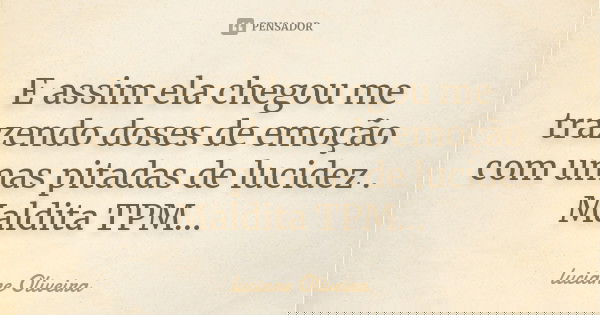 PENSADOR
E assim ela chegou me
trazendo doses de emoção
com umas pitadas de lucidez .
Maldita TPM...
Luciane Oliveira